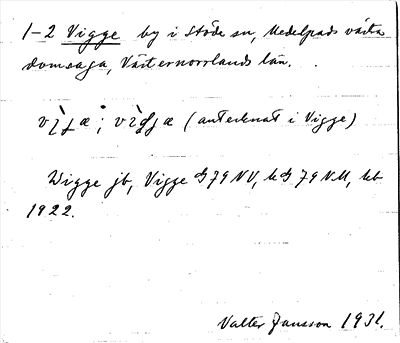 1-2 Vigge by i Stöde sn, Medelpads västra
domsaga, Västernorrlands län.
(antecknat i Vigge)
Wigge jb, Vigge G 79 NV, kG 79 NV, kb
1922.
Valter Jansson 1931.